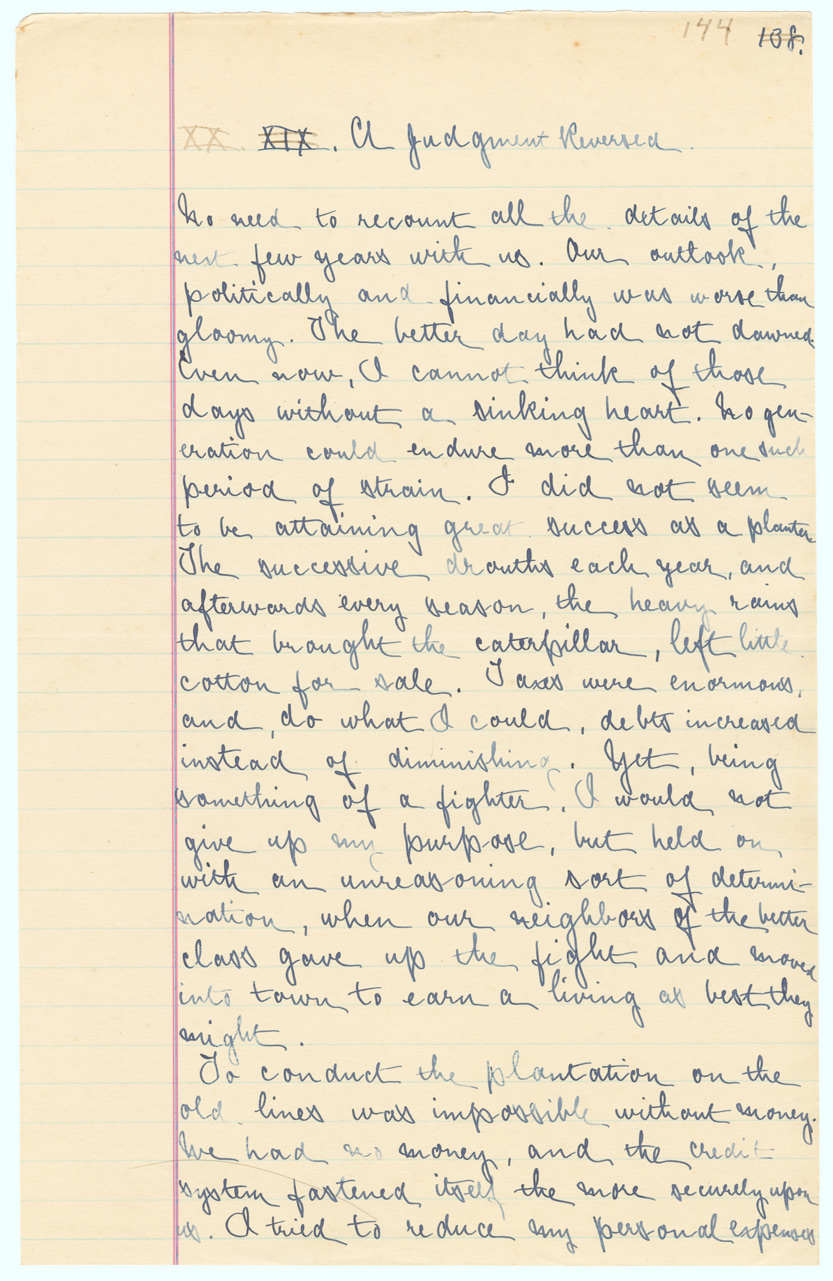 144 138.
XX. XIX. A Judgment Reversed.
No need to recount all the details of the
next few years with us. Our outlook,
politically and financially was worse than
gloomy. The better day had not dawned.
Even now, I cannot think of those
days without a sinking heart. No gen-
eration could endure more than one such
period of strain. I did not seem
to be attaining great success as a planter.
The successive drouths each year, and
afterwards every season, the heavy rains
that brought the caterpillar, left little
cotton for sale. Taxes were enormous,
and, do what I could, debts increased
instead of diminishing. Yet, being
something of a fighter, I would not
give up my purpose, but held on
with an unreasoning sort of determi-
nation, when our neighbors of the better
class gave up the fight and moved
into town to earn a living as best they
might.
To conduct the plantation on the
old lines was impossible without money.
We had no money, and the credit
system fastened itself the more securely upon
us. I tried to reduce my personal expenses